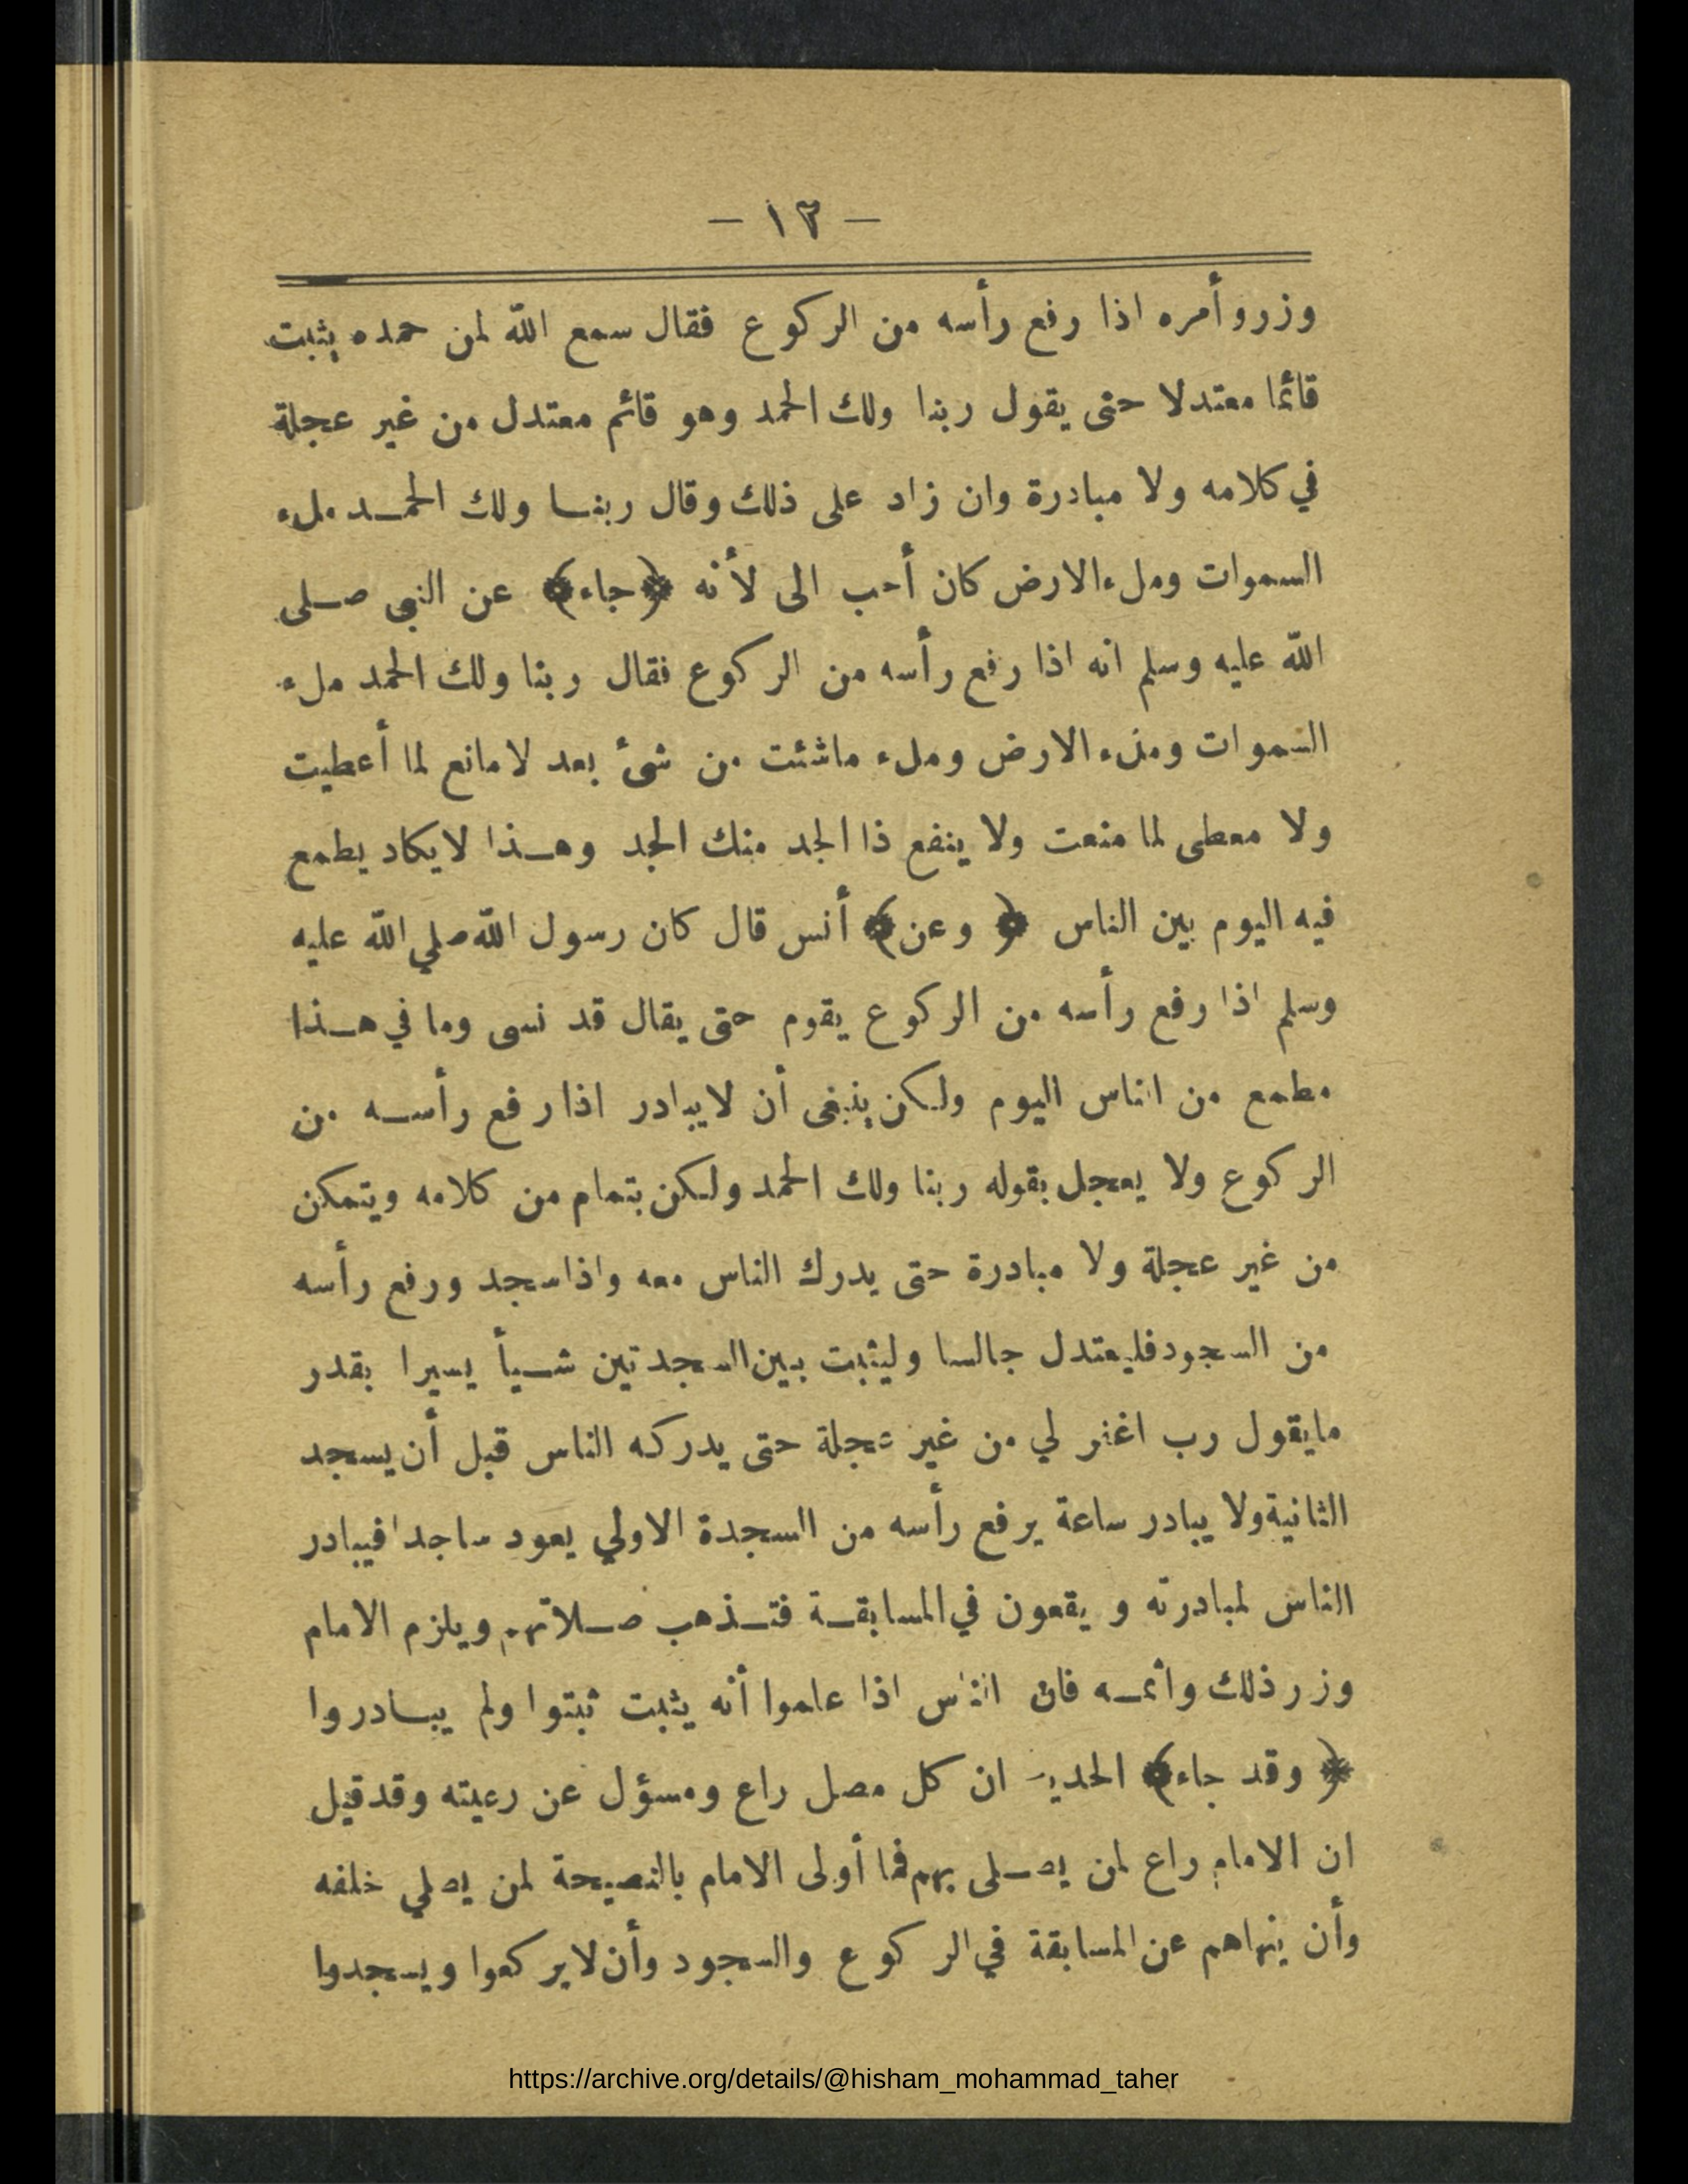 — ١٣ —
وزرو أمره اذا رفع رأسه من الركوع فقال سمع الله لمن حمده يثبت
قائما معتدلا حتى يقول ربنا ولك الحمد وهو قائم معتدل من غير عجلة
في كلامه ولا مبادرة وان زاد على ذلك وقال ربنا ولك الحمد ملء
السموات وملء الارض كان أحب الى لأنه ﴿جاء﴾ عن النبى صلى
الله عليه وسلم انه اذا رفع رأسه من الركوع فقال ربنا ولك الحمد ملء
السموات وملء الارض وملء ماشئت من شئ بعد لا مانع لما أعطيت
ولا معطى لما منعت ولا ينفع ذا الجد منك الجد وهذا لا يكاد يطمع
فيه اليوم بين الناس ﴿وعن﴾ أنس قال كان رسول الله صلي الله عليه
وسلم اذا رفع رأسه من الركوع يقوم حتى يقال قد نسى وما في هذا
مطمع من الناس اليوم ولكن ينبغى أن لا يبادر اذا رفع رأسه من
الركوع ولا يعجل بقوله ربنا ولك الحمد ولكن بتمام من كلامه ويتمكن
من غير عجلة ولا مبادرة حتى يدرك الناس معه واذا سجد ورفع رأسه
من السجود فليعتدل جالسا وليثبت بين السجدتين شيأ يسيرا بقدر
مايقول رب اغفر لي من غير عجلة حتى يدركه الناس قبل أن يسجد
الثانية ولا يبادر ساعة يرفع رأسه من السجدة الاولي يعود ساجدا فيبادر
الناس لمبادرته ويقعون في المسابقة فتذهب صلاتهم ويلزم الامام
وزر ذلك واثمه فان الناس اذا علموا أنه يثبت ثبتوا ولم يبادروا
﴿وقد جاء﴾ الحديث ان كل مصل راع ومسؤل عن رعيته وقد قيل
ان الامام راع لمن يصلى بهم فما أولى الامام بالنصيحة لمن يصلي خلفه
وأن ينهاهم عن المسابقة في الركوع والسجود وأن لا يركعوا ويسجدوا
https://archive.org/details/@hisham_mohammad_taher